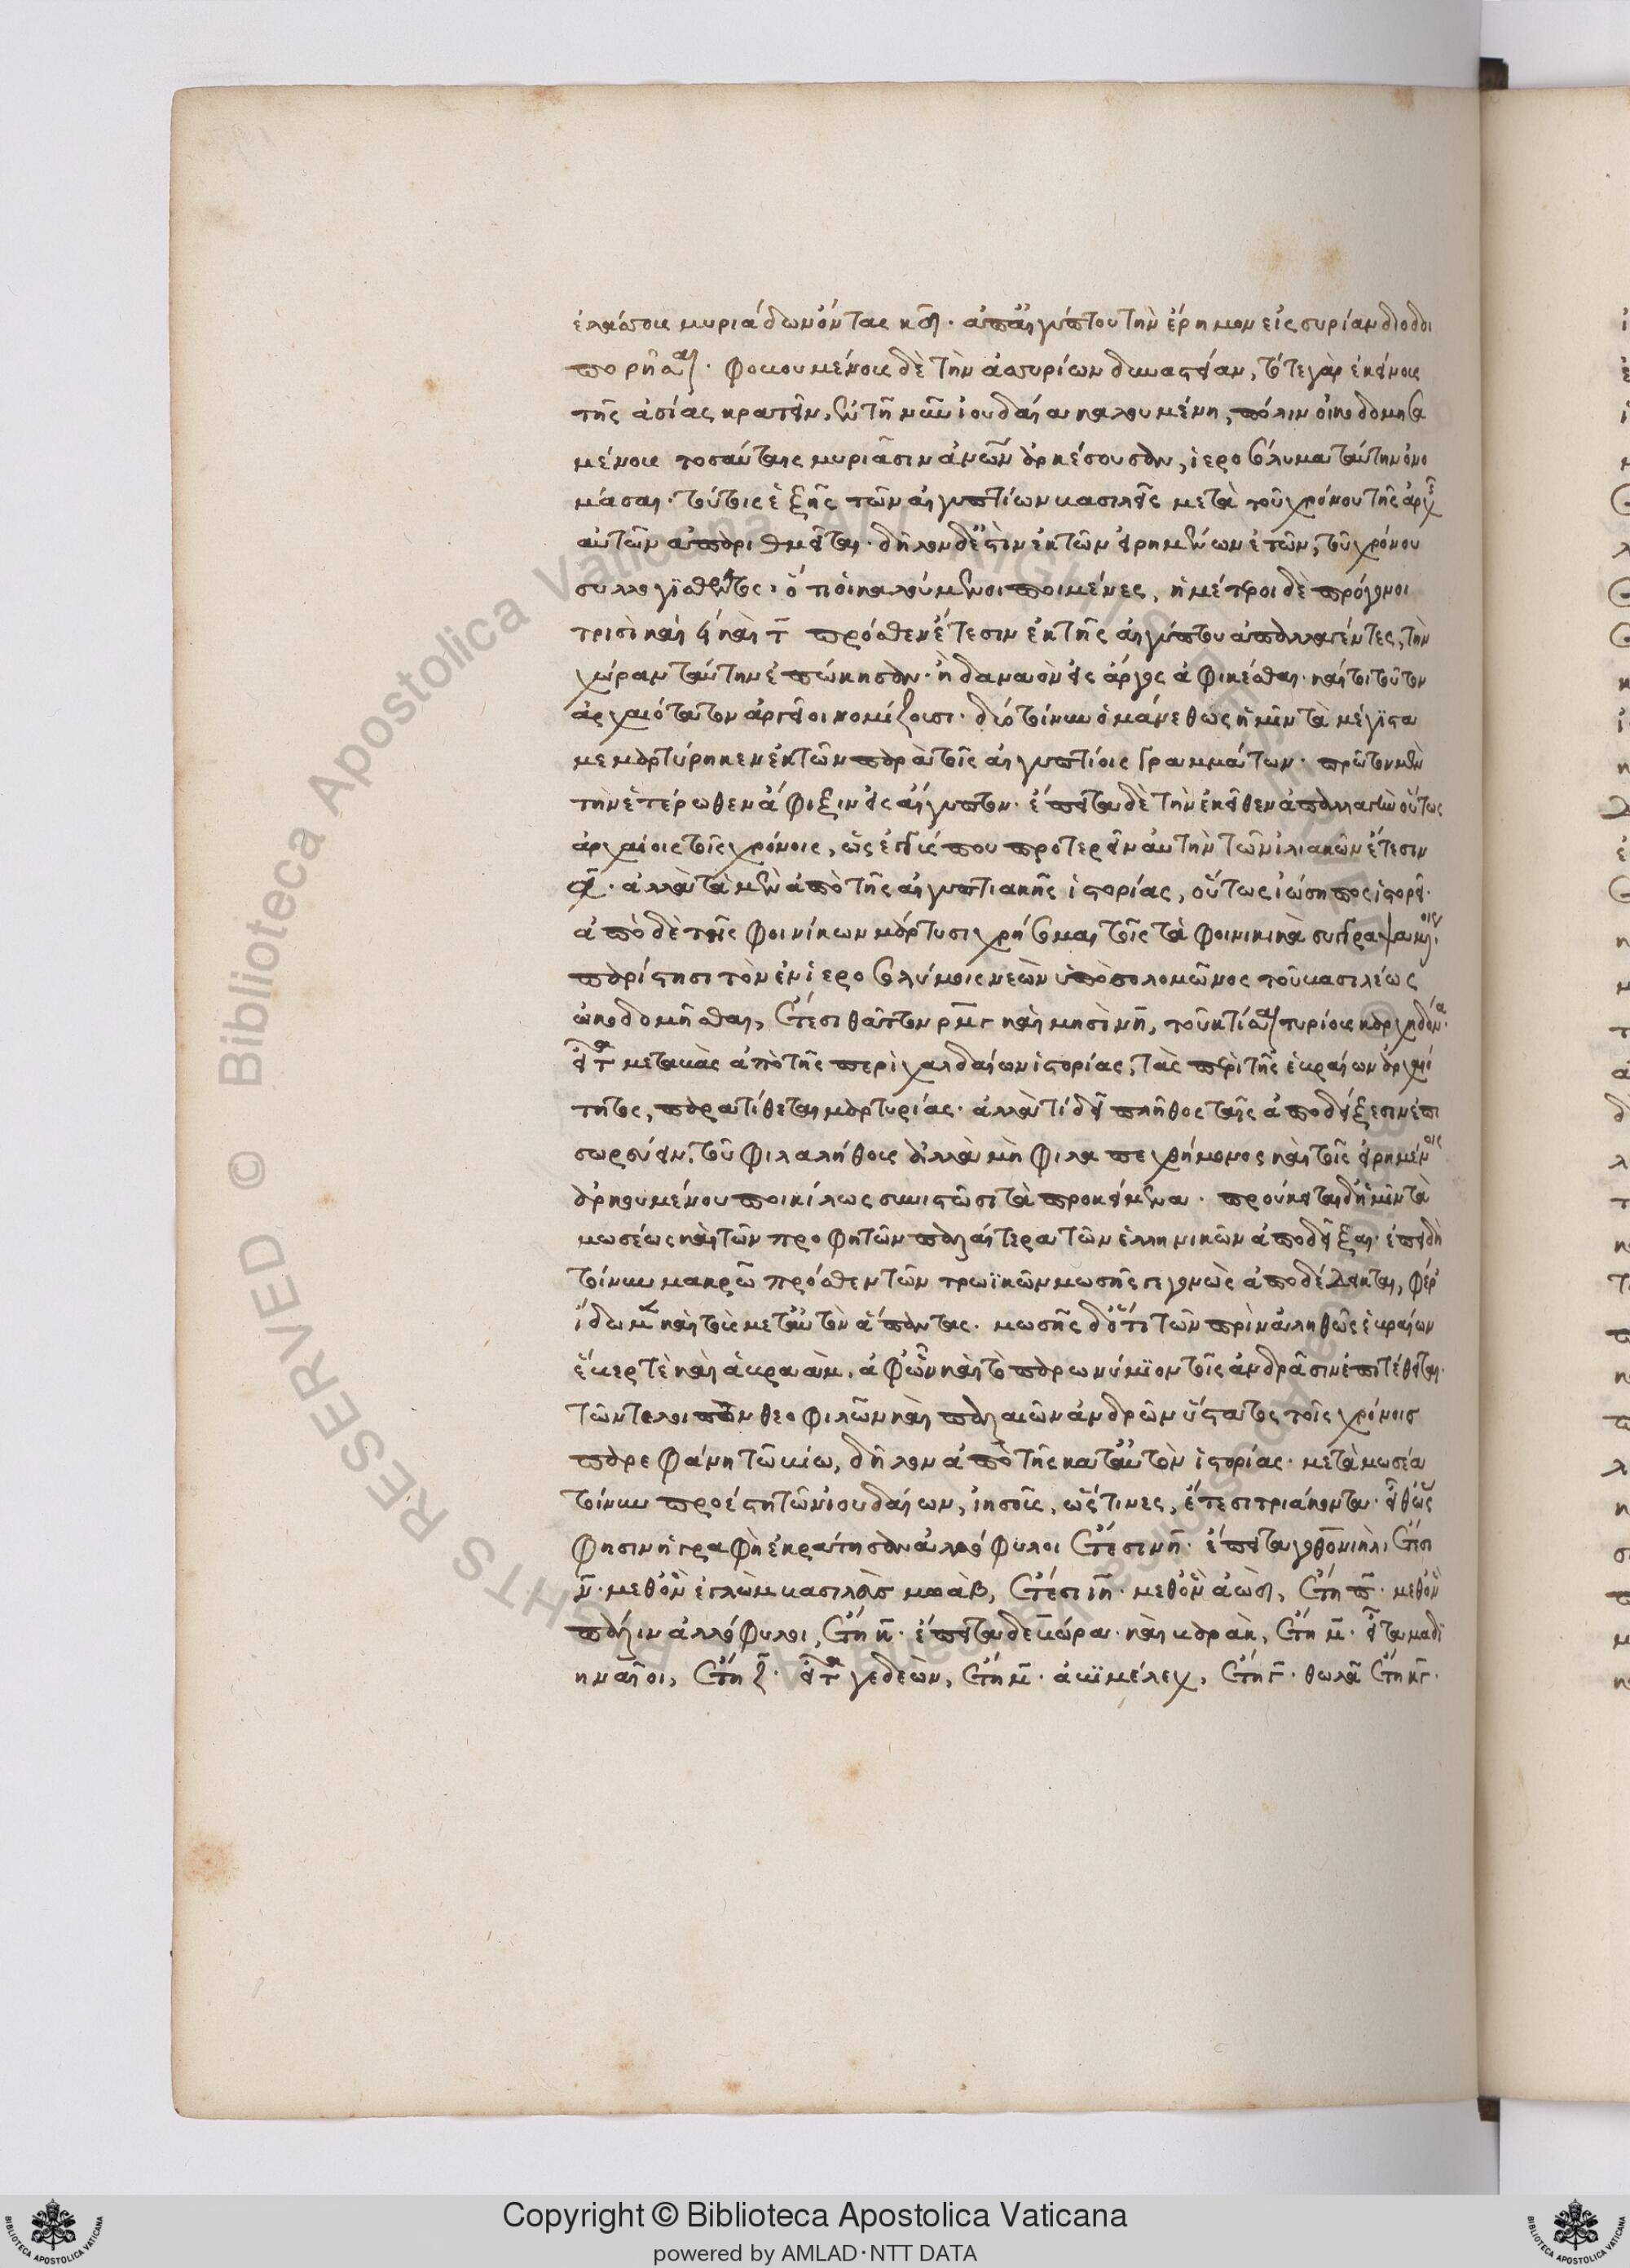 ἐλάσσους μυριάδων ὄντας κδ. ἀπ' αἰγύπτου τὴν ἔρημον εἰς συρίαν διοδοι
πορῆσαι. φοβουμένους δὲ τὴν ἀσσυρίων δυναστείαν, τότε γὰρ ἐκείνους
τῆς ἀσίας κρατεῖν, ἐν τῇ νῦν ἰουδαία καλουμένη, πόλιν οἰκοδομησα
μένους τοσαύταις μυριάσιν ἀνθρώπων ἀρκέσουσαν, ἱεροσόλυμα ταύτην ὀνο
μάσαι. τούτοις ἑξῆς τῶν αἰγυπτίων βασιλεῖς μετὰ τοῦ χρόνου τῆς ἀρχῆς
αὐτῶν ἀπαριθμεῖται. δῆλον δέ ἐστιν ἐκ τῶν εἰρημένων ἐτῶν, τοῦ χρόνου
συλλογισθέντος. ὅτι οἱ καλούμενοι ποιμένες, ἡμέτεροι δὲ πρόγονοι
τρισὶ καὶ ϟ καὶ τ πρόσθεν ἔτεσιν ἐκ τῆς αἰγύπτου ἀπαλλαγέντες, τὴν
χώραν ταύτην ἐπῴκησαν. ἢ δαναὸν εἰς ἄργος ἀφικέσθαι. καίτοι τοῦτον
ἀρχαιότατον ἀργεῖοι νομίζουσι. δύο τοίνυν ὁ μάνεθως ἡμῖν τὰ μέγιστα
μεμαρτύρηκεν ἐκ τῶν παρὰ τοῖς αἰγυπτίοις γραμμάτων. πρῶτον μὲν
τὴν ἑτέρωθεν ἄφιξιν εἰς αἴγυπτον. ἔπειτα δὲ τὴν ἐκεῖθεν ἀπαλλαγὴν οὕτως
ἀρχαίοις τοῖς χρόνοις, ὡς ἐγγύς που προτερεῖν αὐτὴν τῶν ἰλιακῶν ἔτεσιν
α. ἀλλὰ τὰ μὲν ἀπὸ τῆς αἰγυπτιακῆς ἱστορίας, οὕτως ἰώσηπος ἱστορεῖ.
ἀπὸ δὲ τῆς φοινίκων μάρτυσι χρήσομαι τοῖς τὰ φοινικικὰ συγγραψαμένοις.
παρίστησι τὸν ἐν ἱεροσολύμοις νεὼν ὑπὸ σολομῶνος τοῦ βασιλέως
ᾠκοδομῆσθαι, ἔτεσι θᾶττον ρμγ καὶ μησὶν η, τοῦ κτίσαι τυρίους καρχηδόνα.
εἶτα μεταβὰς ἀπὸ τῆς περὶ χαλδαίων ἱστορίας, τὰς περὶ τῆς ἑβραίων ἀρχαιό
τητος, παρατίθεται μαρτυρίας. ἀλλὰ τί δεῖ πλῆθος ταῖς ἀποδείξεσιν ἐπι
σωρεύειν. τοῦ φιλαλήθους ἀλλὰ μὴ φιλαπεχθήμονος καὶ τοῖς εἰρημένοις
ἀρκουμένου ποικίλως συνιστῶσι τὰ προκείμενα. προύκειτο δ' ἡμῖν τὰ
μωσέως καὶ τῶν προφητῶν παλαίτερα τῶν ἑλληνικῶν ἀποδεῖξαι. ἐπειδὴ
τοίνυν μακρῷ πρόσθεν τῶν τρωϊκῶν μωσῆς γεγονὼς ἀποδέδεικται, φέρ'
ἴδωμεν καὶ τοὺς μετ' αὐτὸν ἅπαντας. μωσῆς δ' ὅτι τῶν πρὶν ἀληθῶς ἑβραίων
ἔβερ τὲ καὶ ἀβραὰμ, ἀφ' ὧν καὶ τὸ παρωνύμιον τοῖς ἀνδράσιν ἐπιτέθειται.
τῶν τε λοιπῶν θεοφιλῶν καὶ παλαιῶν ἀνδρῶν ὕστατος τοῖς χρόνοις
παρεφάνη τῷ βίῳ, δῆλον ἀπὸ τῆς κατ' αὐτὸν ἱστορίας. μετὰ μωσέα
τοίνυν προέστη τῶν ἰουδαίων, ἰησοῦς, ὥς τινες, ἔτεσι τριάκοντα. εἶθ' ὥς
φησιν ἡ γραφὴ ἐκράτησαν ἀλλόφυλοι ἔτεσιν η. ἔπειτα γοθονιὴλ, ἔτεσι
ν. μεθ' ὃν ἐγλὼμ βασιλεὺς μωὰβ, ἔτεσι ιη. μεθ' ὃν ἀὼδ, ἔτη π. μεθ' ὃν
πάλιν ἀλλόφυλοι, ἔτη κ. ἔπειτα δεβώρα. καὶ βαρὰκ, ἔτη μ. εἶτα μαδι
ηναῖοι, ἔτη ζ. εἶτα γεδεὼν, ἔτη μ. ἀβιμέλεχ, ἔτη γ. θωλᾶ ἔτη κγ.